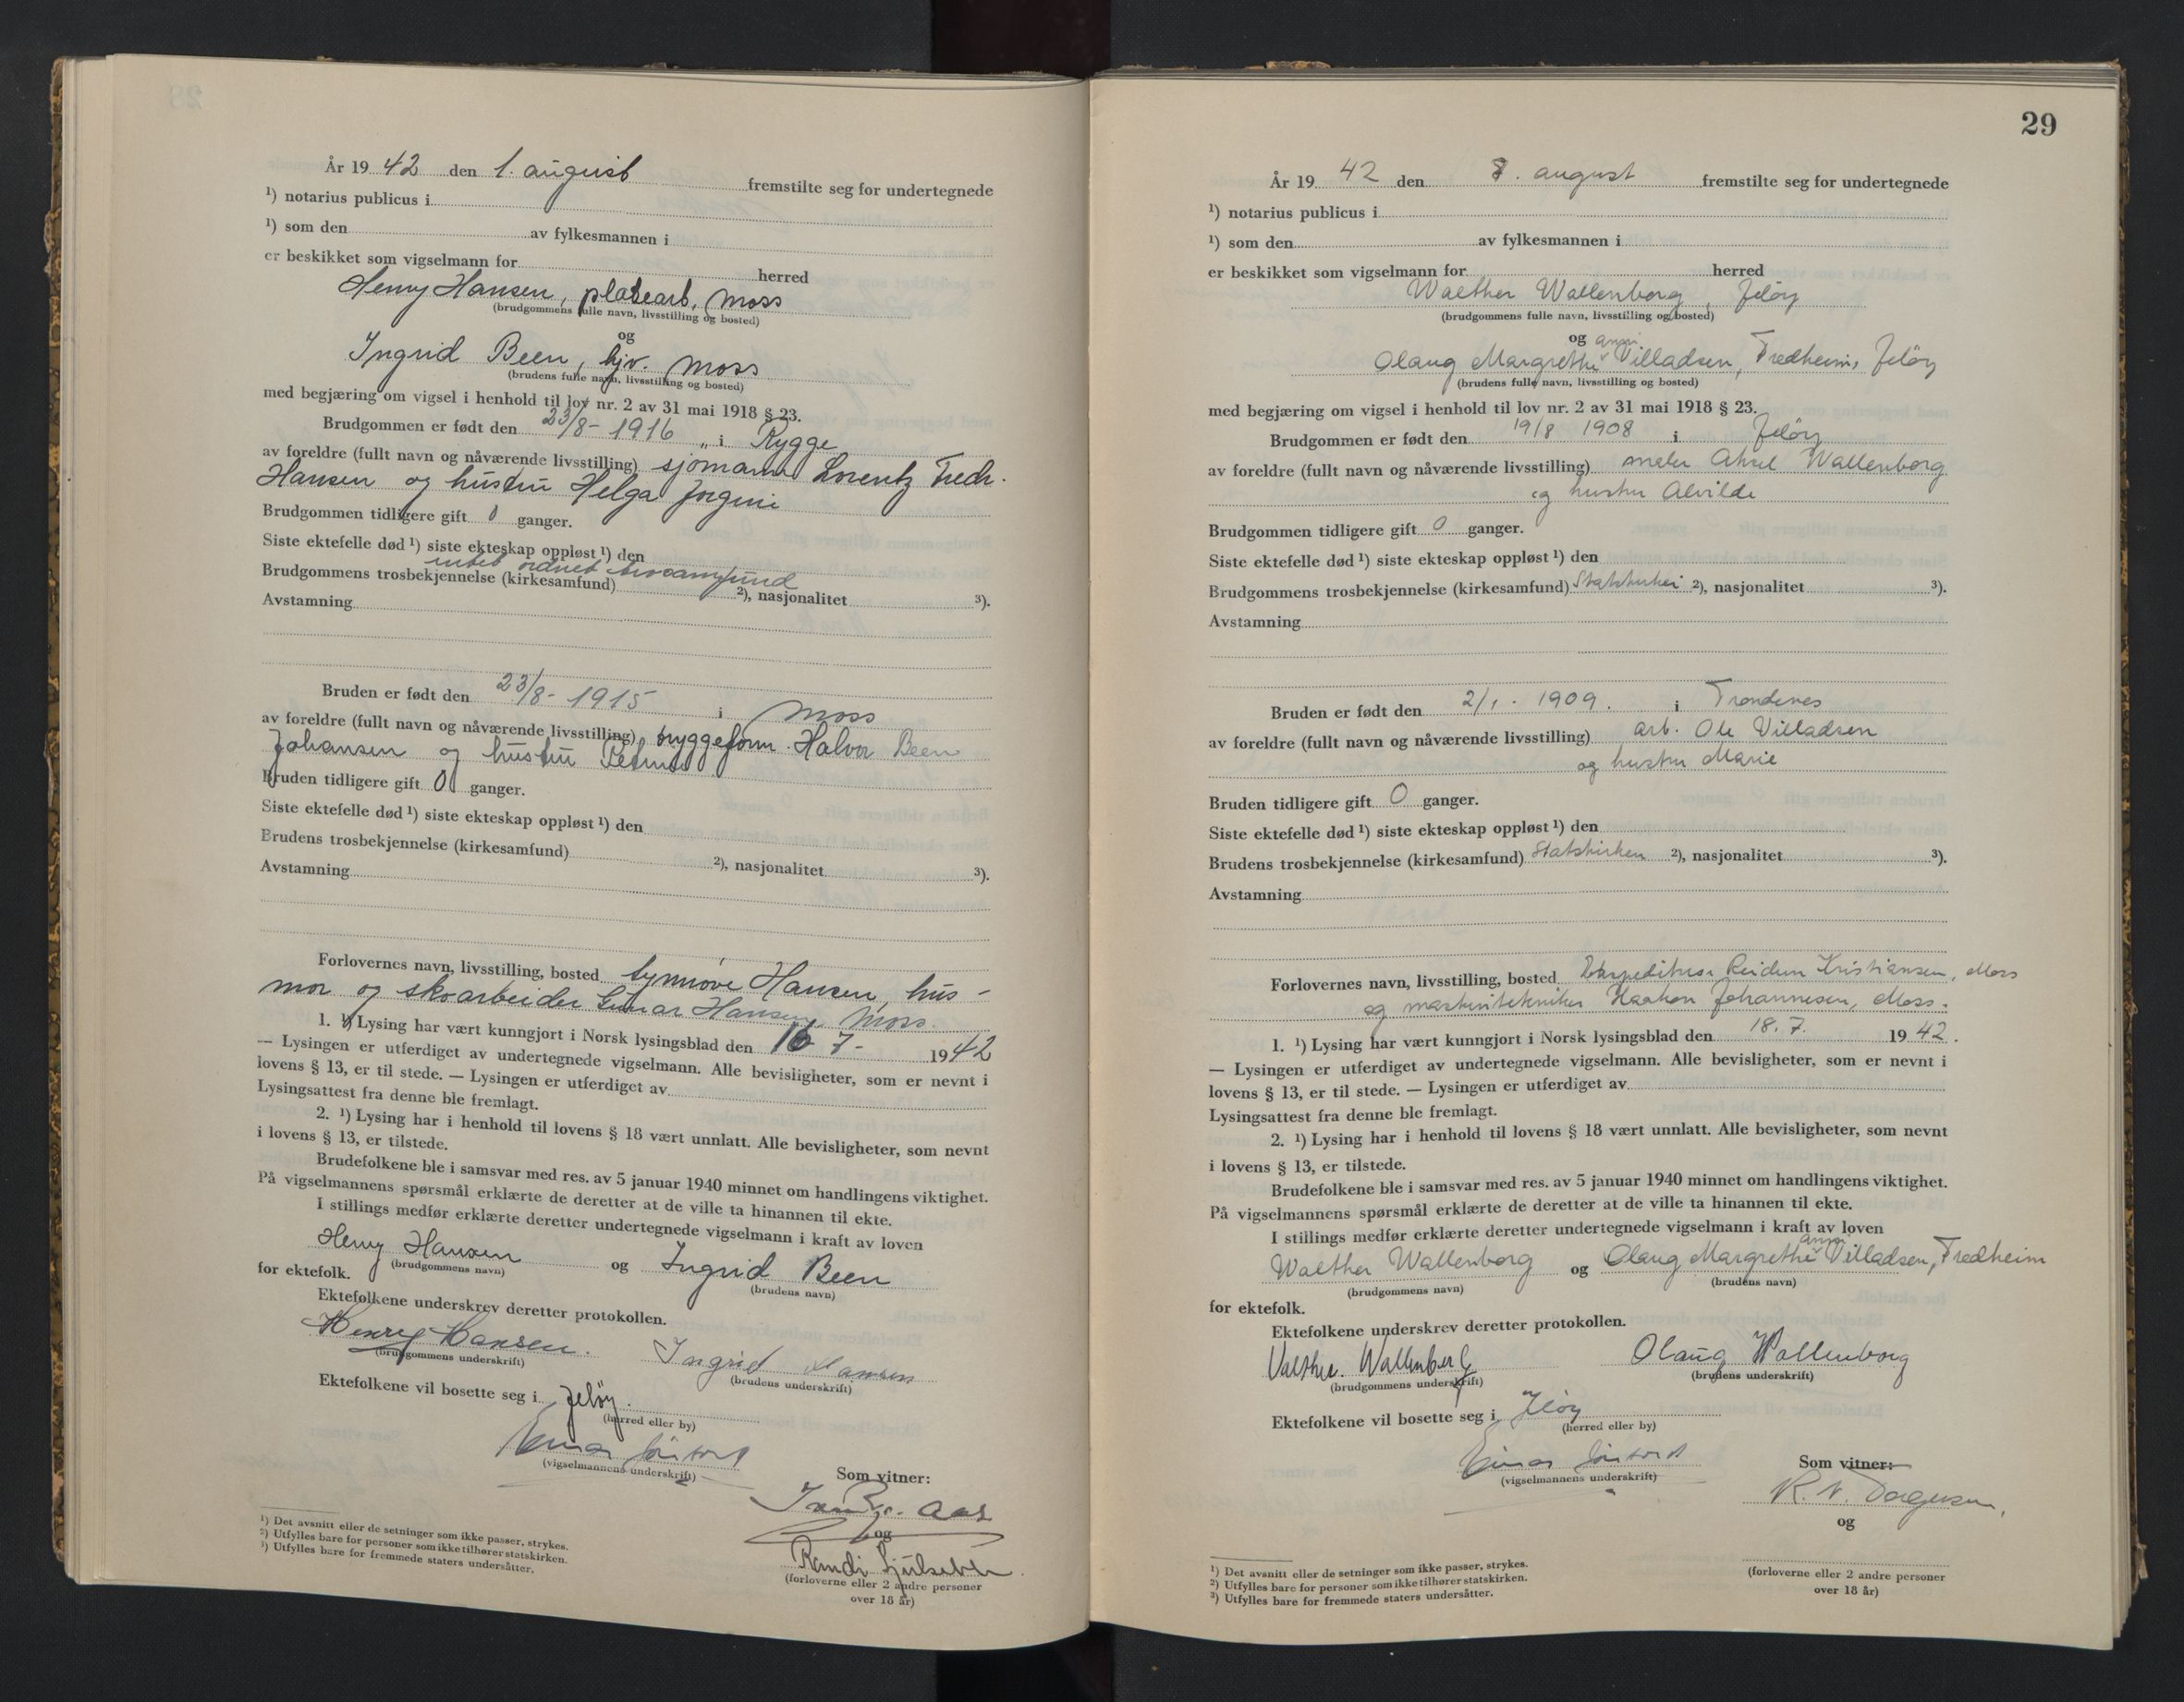 År 19 42 den 1. august fremstilte seg for undertegnede
¹) notarius publicus i
¹) som den av fylkesmannen i
er beskikket som vigselmann for herred
Henry Hansen, platearb. Moss
(brudgommens fulle navn, livsstilling og bosted)
og
Ingrid Been, hjv. Moss
(brudens fulle navn, livsstilling og bosted)
med begjæring om vigsel i henhold til lov nr. 2 av 31 mai 1918 § 23.
Brudgommen er født den 23/8 - 1916 i Rygge
av foreldre (fullt navn og nåværende livsstilling) sjømann Lorentz Fredr.
Hansen og hustru Helga Jørgine
Brudgommen tidligere gift 0 ganger.
Siste ektefelle død ¹) siste ekteskap oppløst ¹) den
intet ordnet trossamfund
Brudgommens trosbekjennelse (kirkesamfund) ²), nasjonalitet ³).
Avstamning
Bruden er født den 23/8 - 1915 i Moss
av foreldre (fullt navn og nåværende livsstilling) bryggeform. Halvor Been
Johansen og hustru
Bruden tidligere gift 0 ganger.
Siste ektefelle død ¹) siste ekteskap oppløst ¹) den
Brudens trosbekjennelse (kirkesamfund) ²), nasjonalitet ³).
Avstamning
Forlovernes navn, livsstilling, bosted Synnøve Hansen, hus-
mor og skoarbeider Hansen, Moss.
1. ¹) Lysing har vært kunngjort i Norsk lysingsblad den 16 7 - 1942
— Lysingen er utferdiget av undertegnede vigselmann. Alle bevisligheter, som er nevnt i
lovens § 13, er til stede. — Lysingen er utferdiget av
Lysingsattest fra denne ble fremlagt.
2. ¹) Lysing har i henhold til lovens § 18 vært unnlatt. Alle bevisligheter, som nevnt
i lovens § 13, er tilstede.
Brudefolkene ble i samsvar med res. av 5 januar 1940 minnet om handlingens viktighet.
På vigselmannens spørsmål erklærte de deretter at de ville ta hinannen til ekte.
I stillings medfør erklærte deretter undertegnede vigselmann i kraft av loven
Henry Hansen og Ingrid Been
(brudgommens navn) (brudens navn)
for ektefolk.
Ektefolkene underskrev deretter protokollen.
Henry Hansen. Ingrid Hansen
(brudgommens underskrift) (brudens underskrift)
Ektefolkene vil bosette seg i Jeløy.
(herred eller by)
Einar
(vigselmannens underskrift)
Som vitner:
Aas
og
Randi
(forloverne eller 2 andre personer
over 18 år)
¹) Det avsnitt eller de setninger som ikke passer, strykes.
²) Utfylles bare for personer som ikke tilhører statskirken.
³) Utfylles bare for fremmede staters undersåtter.
29
År 19 42 den 8. august fremstilte seg for undertegnede
¹) notarius publicus i
¹) som den av fylkesmannen i
er beskikket som vigselmann for herred
Walther Wallenborg, Jeløy
(brudgommens fulle navn, livsstilling og bosted)
og
Olaug Margrethe Villadsen, Fredheim, Jeløy
(brudens fulle navn, livsstilling og bosted)
med begjæring om vigsel i henhold til lov nr. 2 av 31 mai 1918 § 23.
Brudgommen er født den 19/8 1908 i Jeløy
av foreldre (fullt navn og nåværende livsstilling) maler Aksel Wallenborg
og hustru Alvilde
Brudgommen tidligere gift 0 ganger.
Siste ektefelle død ¹) siste ekteskap oppløst ¹) den
Brudgommens trosbekjennelse (kirkesamfund) Statskirken ²), nasjonalitet ³).
Avstamning
Bruden er født den 2/1. 1909. i Trondenes
av foreldre (fullt navn og nåværende livsstilling) arb. Ole Villadsen
og hustru Marie
Bruden tidligere gift 0 ganger.
Siste ektefelle død ¹) siste ekteskap oppløst ¹) den
Brudens trosbekjennelse (kirkesamfund) Statskirken ²), nasjonalitet ³).
Avstamning
Forlovernes navn, livsstilling, bosted Ekspeditrise Reidun Kristiansen, Moss
og maskintekniker Haakon Johannesen, Moss.
1. ¹) Lysing har vært kunngjort i Norsk lysingsblad den 18. 7. 1942.
— Lysingen er utferdiget av undertegnede vigselmann. Alle bevisligheter, som er nevnt i
lovens § 13, er til stede. — Lysingen er utferdiget av
Lysingsattest fra denne ble fremlagt.
2. ¹) Lysing har i henhold til lovens § 18 vært unnlatt. Alle bevisligheter, som nevnt
i lovens § 13, er tilstede.
Brudefolkene ble i samsvar med res. av 5 januar 1940 minnet om handlingens viktighet.
På vigselmannens spørsmål erklærte de deretter at de ville ta hinannen til ekte.
I stillings medfør erklærte deretter undertegnede vigselmann i kraft av loven
Walther Wallenborg og Olaug Margrethe Villadsen, Fredheim
(brudgommens navn) (brudens navn)
for ektefolk.
Ektefolkene underskrev deretter protokollen.
Walther Wallenberg Olaug Wallenborg
(brudgommens underskrift) (brudens underskrift)
Ektefolkene vil bosette seg i Jeløy
(herred eller by)
Einar
(vigselmannens underskrift)
Som vitner:
R. N. Torgersen,
og
(forloverne eller 2 andre personer
over 18 år)
¹) Det avsnitt eller de setninger som ikke passer, strykes.
²) Utfylles bare for personer som ikke tilhører statskirken.
³) Utfylles bare for fremmede staters undersåtter.